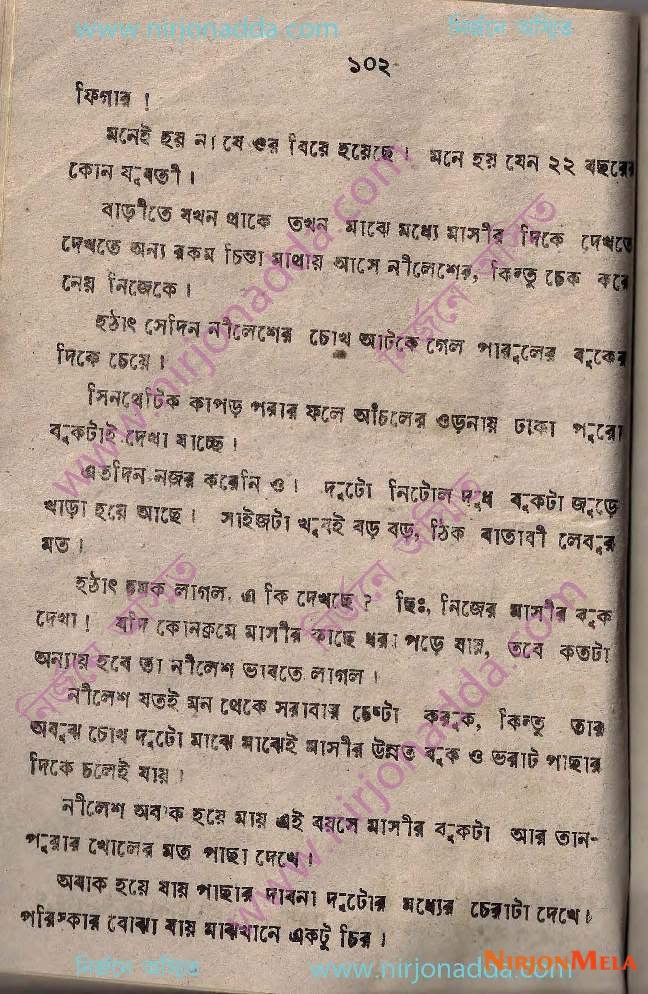 www.nirjonadda.com
নির্জনে অসিত
১০২
ফিগার !
মনেই হয় না যে ওর বিয়ে হয়েছে। মনে হয় যেন ২২ বছরের
কোন যুবতী।
বাড়ীতে যখন থাকে তখন মাঝে মধ্যে মাসীর দিকে দেখতে
দেখতে অন্য রকম চিন্তা মাথায় আসে নীলেশের, কিন্তু চেক করে
নেয় নিজেকে।
হঠাৎ সেদিন নীলেশের চোখ আটকে গেল পারুলের বুকের
দিকে চেয়ে।
সিনথেটিক কাপড় পরার ফলে আঁচলের ওড়নায় ঢাকা পুরো
বুকটাই দেখা যাচ্ছে।
এতদিন নজর করেনি ও। দুটো নিটোল দুধ বুকটা জুড়ে
খাড়া হয়ে আছে। সাইজটা খুবই বড় বড়, ঠিক বাতাবী লেবুর
মত।
হঠাৎ চমক লাগল, এ কি দেখছে ? ছিঃ, নিজের মাসীর বুক
দেখা ! যদি কোনক্রমে মাসীর কাছে ধরা পড়ে যায়, তবে কতটা
অন্যায় হবে তা নীলেশ ভাবতে লাগল।
নীলেশ যতই মন থেকে সরাবার চেষ্টা করুক, কিন্তু তার
অবুঝ চোখ দুটো মাঝে মাঝেই মাসীর উন্নত বুক ও ভরাট পাছার
দিকে চলেই যায়।
নীলেশ অবাক হয়ে যায় এই বয়সে মাসীর বুকটা আর তান-
পুরার খোলের মত পাছা দেখে।
অবাক হয়ে যায় পাছার দাবনা দুটোর মধ্যের চেরাটা দেখে।
পরিস্কার বোঝা যায় মাঝখানে একটু চির।
নির্জনে অসিত
www.nirjonadda.com
NIRJONMELA